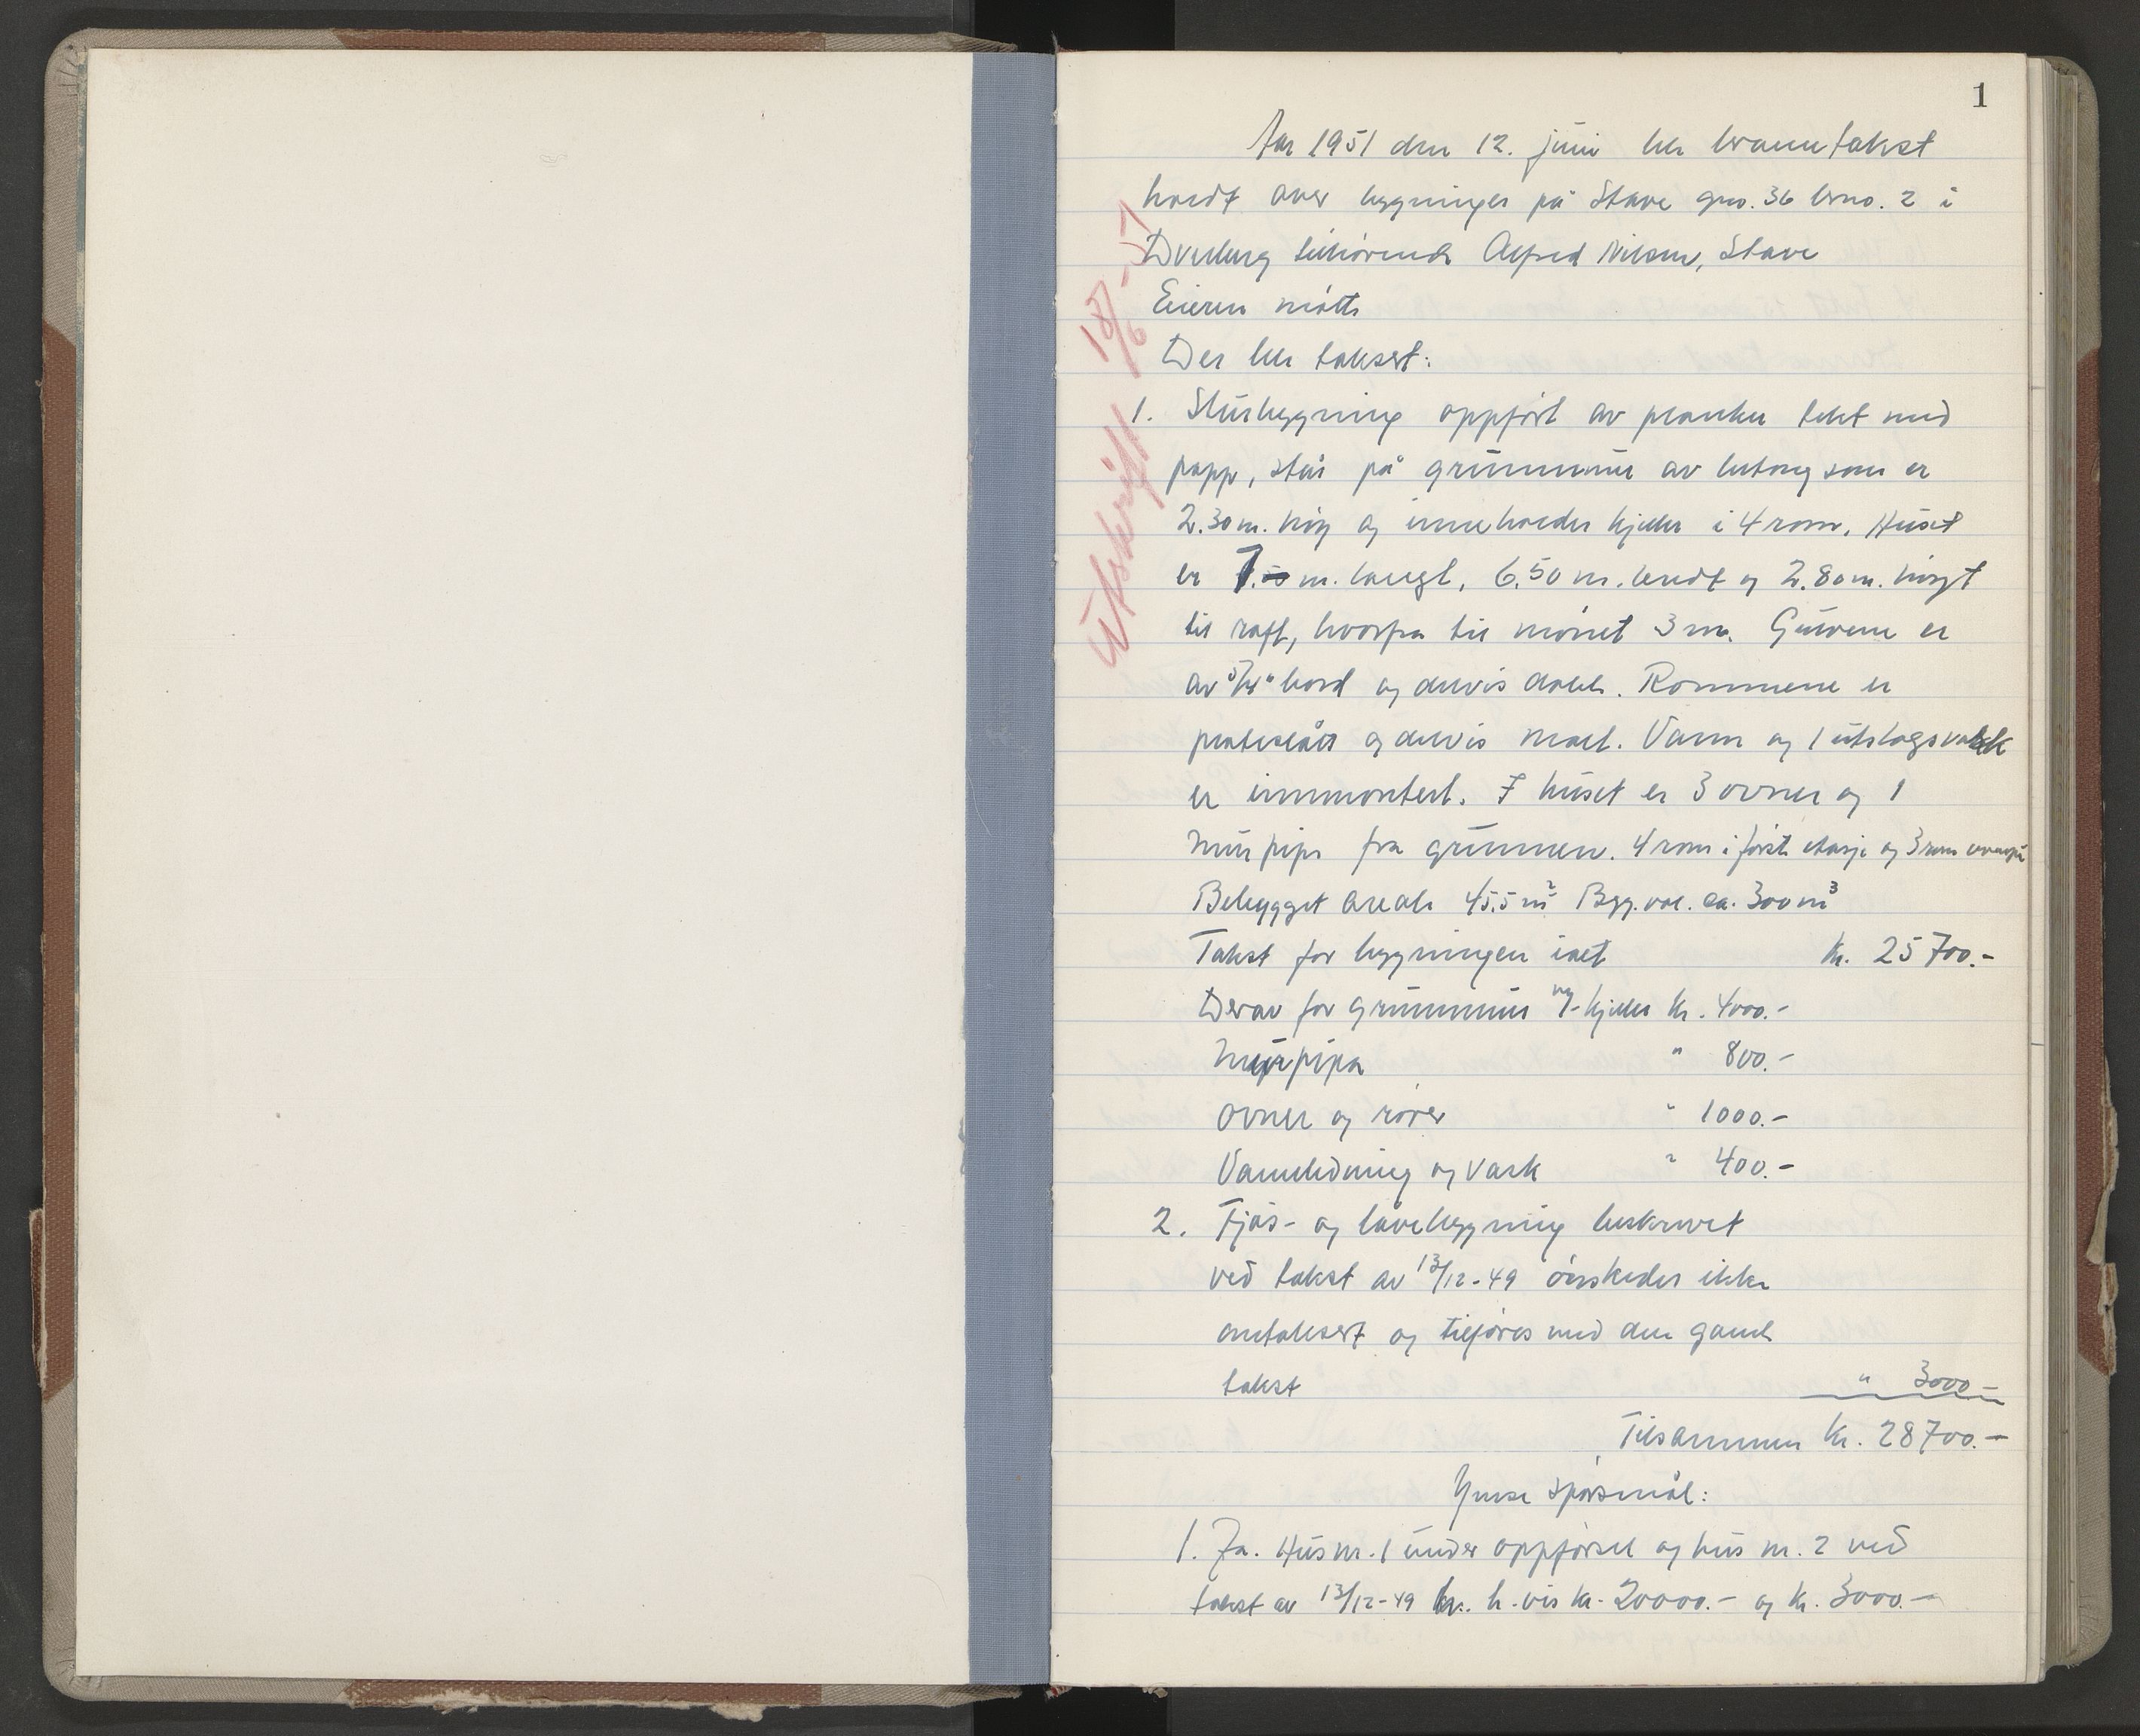 1
År 1951 den 12. juni ble branntakst
holdt over bygninger på Stave gno. 36 brno. 2 i
Dverberg tilhørende Alfred Nilsen, Stave
Eieren møtte
Der ble taksert:
1. Stuebygning oppført av planker tekt med
papp, står på grunnmur av betong som er
2.30 m. høy og inneholder kjeller i 4 rom. Huset
er 7. m. langt, 6.50 m. bredt og 2.80 m. høgt
til raft, hvorfra til mønet 3 m. Gulvene er
av 5/4" bord og delvis dobb. Rommene er
plateslått og delvis malt. Vann og 1 utslagsvask
er innmontert. I huset er 3 ovner og 1
murpipe fra grunnen. 4 rom i første etasje og 3 rom ovenpå
Bebygget areale 45.5 m² Byg. vol. ca. 300 m³
Takst for bygningen i alt Kr. 25700.-
Derav for grunnmur og kjeller kr. 4000.-
Murpipa " 800.-
Ovner og rører " 1000.-
Vannledning og vask " 400.-
2. Fjøs- og låvebygning beskrevet
ved takst av 13/12-49 ønskedes ikke
omtaksert og tilføres med den gamle
takst " 3000.-
Tilsammen Kr. 28700.-
Ymse spørsmål:
1. Ja. Hus nr. 1 under oppførsel og hus nr. 2 ved
takst av 13/12-49 h. h. vis kr. 20000.- og kr. 3000.-
Utskrift 18/6-51